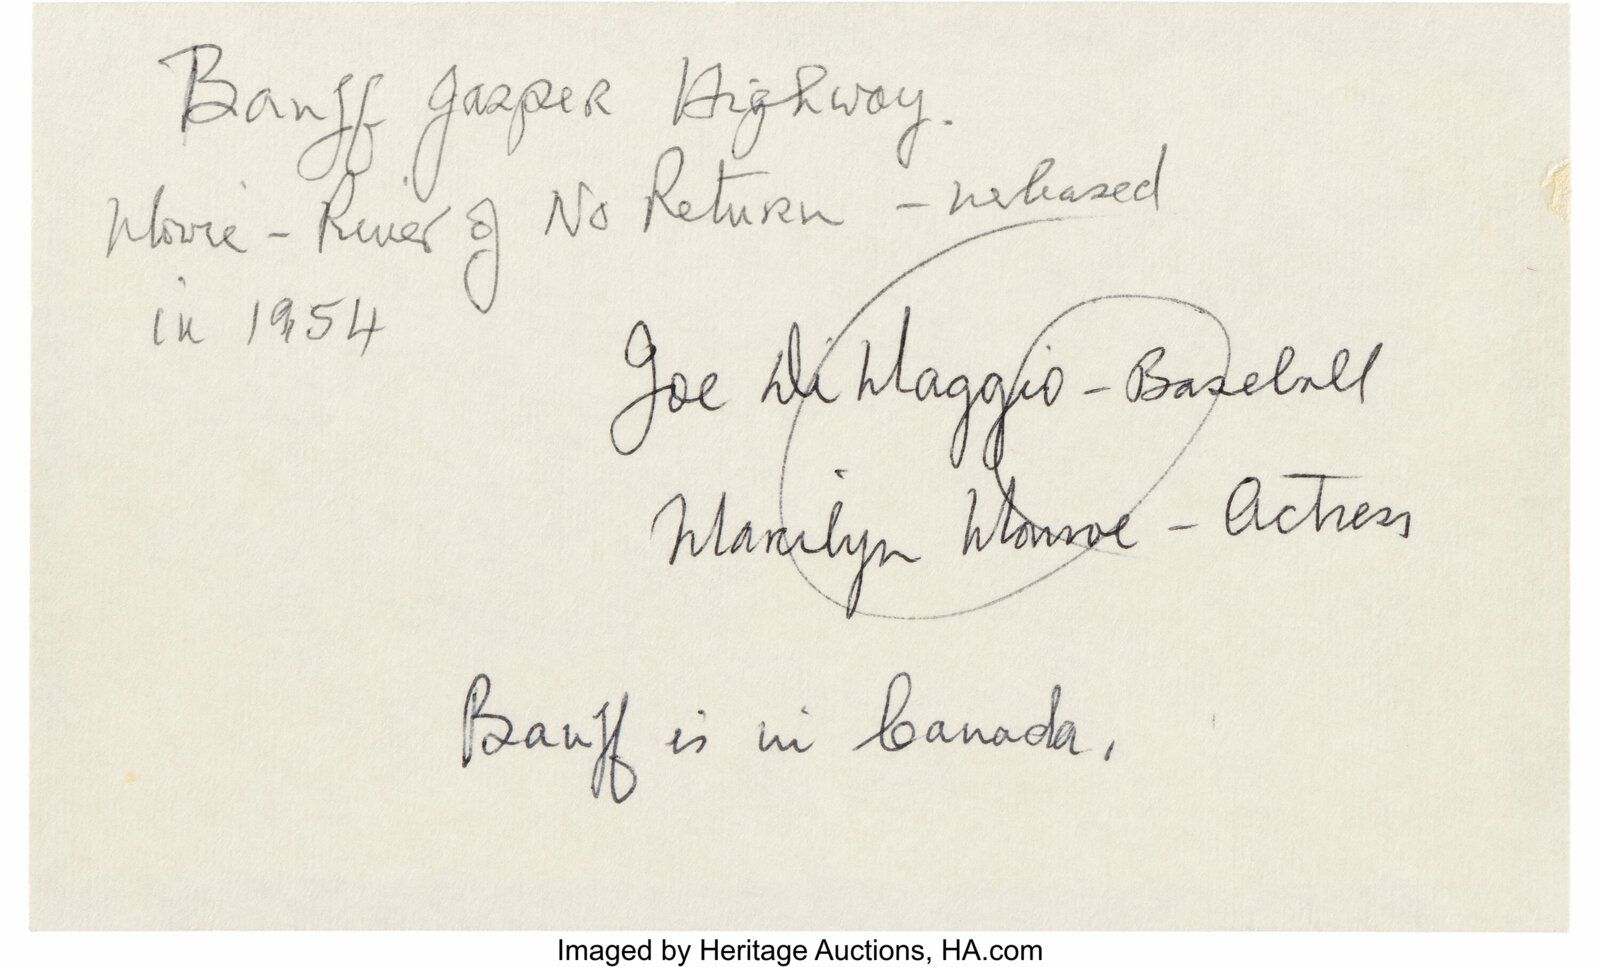 Banff Jasper Highway.
Movie - River of No Return - released
in 1954
Joe DiMaggio - Baseball
Marilyn Monroe - Actress
Banff is in Canada.
Imaged by Heritage Auctions, HA.com